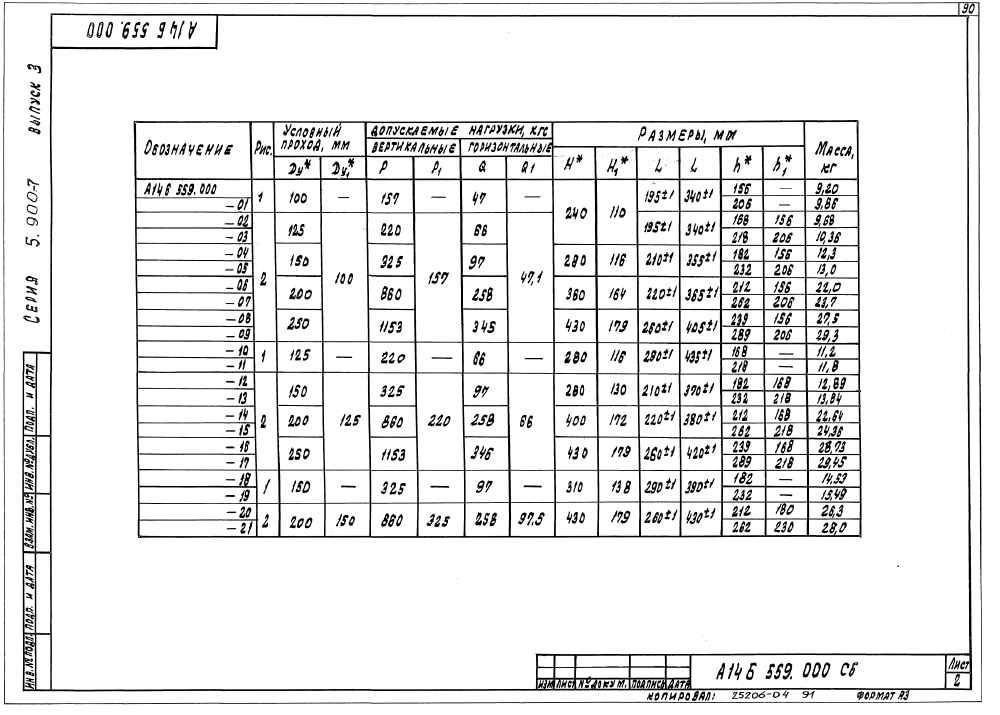 90
А14Б 559.000
Серия 5.900-7 Выпуск 3
Обозначение Рис. Условный проход, мм Допускаемые нагрузки, кгс Размеры, мм Масса, кг
Вертикальные Горизонтальные
Ду* Ду1* Р Р1 Q Q1 Н* Н1* L L h* h1*
А14Б 559.000 1 100 — 157 — 47 — 240 110 195±1 340±1 156 — 9,20
-01 206 — 9,86
-02 2 125 100 220 157 66 47,1 195±1 340±1 168 156 9,68
-03 218 206 10,36
-04 150 325 97 280 116 210±1 355±1 182 156 12,3
-05 232 206 13,0
-06 200 860 258 360 164 220±1 365±1 212 156 22,0
-07 262 206 23,7
-08 250 1153 345 430 179 260±1 405±1 239 156 27,5
-09 289 206 29,3
-10 1 125 — 220 — 66 — 280 116 290±1 435±1 168 — 11,2
-11 218 — 11,8
-12 2 150 125 325 220 97 66 280 130 210±1 370±1 182 168 12,89
-13 232 218 13,84
-14 200 860 258 400 172 220±1 380±1 212 168 22,64
-15 262 218 24,36
-16 250 1153 346 430 179 260±1 420±1 239 168 28,73
-17 289 218 29,45
-18 1 150 — 325 — 97 — 310 138 290±1 390±1 182 — 14,53
-19 232 — 15,49
-20 2 200 150 860 325 258 97,5 430 179 260±1 430±1 212 180 26,3
-21 262 230 28,0
Инв. № подл. Подп. и дата Взам. инв. № Инв. № дубл. Подп. и дата
Изм. Лист № докум. Подпись Дата
А14Б 559.000 СБ
Лист
2
Копировал: 25206-04 91 Формат А3